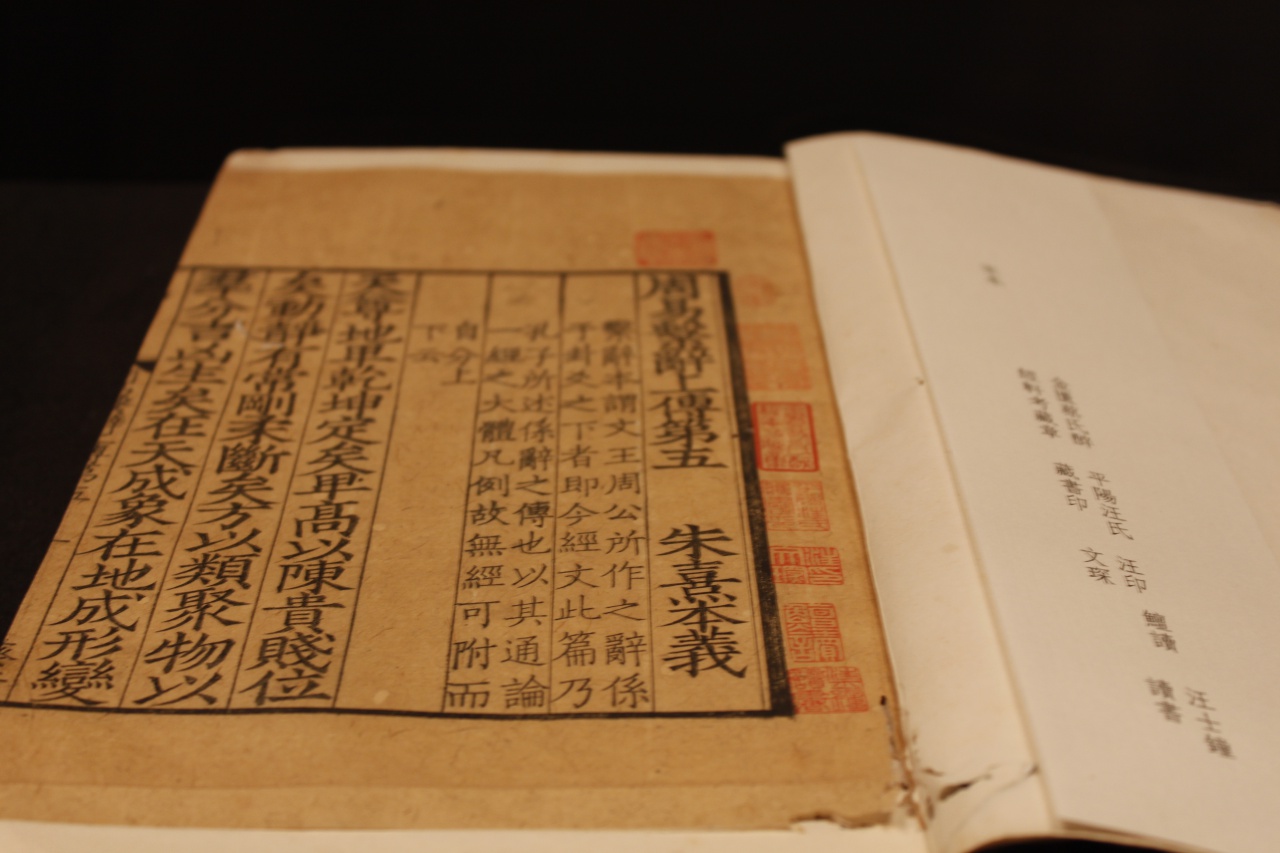 蔡氏醉
考藏章
平陽汪氏
藏書印
汪印
文琛
鱣讀
汪士鐘
讀書
周易繫辭上傳第五 朱熹本義
繫辭本謂文王周公所作之辭係
乎卦爻之下者即今經文此篇乃
孔子所述係辭之傳也以其通論
一經之大體凡例故無經可附而
自分上
下云
天尊地卑乾坤定矣卑高以陳貴賤位
矣動靜有常剛柔斷矣方以類聚物以
羣分吉凶生矣在天成象在地成形變